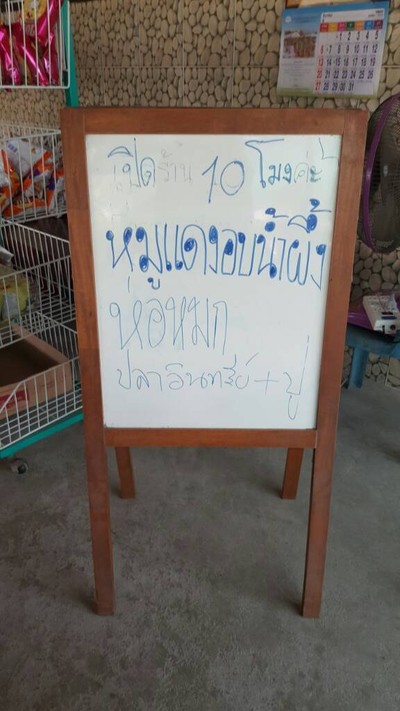 เปิดร้าน 10 โมงค่ะ
หมูแดงอบน้ำผึ้ง
ห่อหมก
ปลาอินทรีย์ + ปู